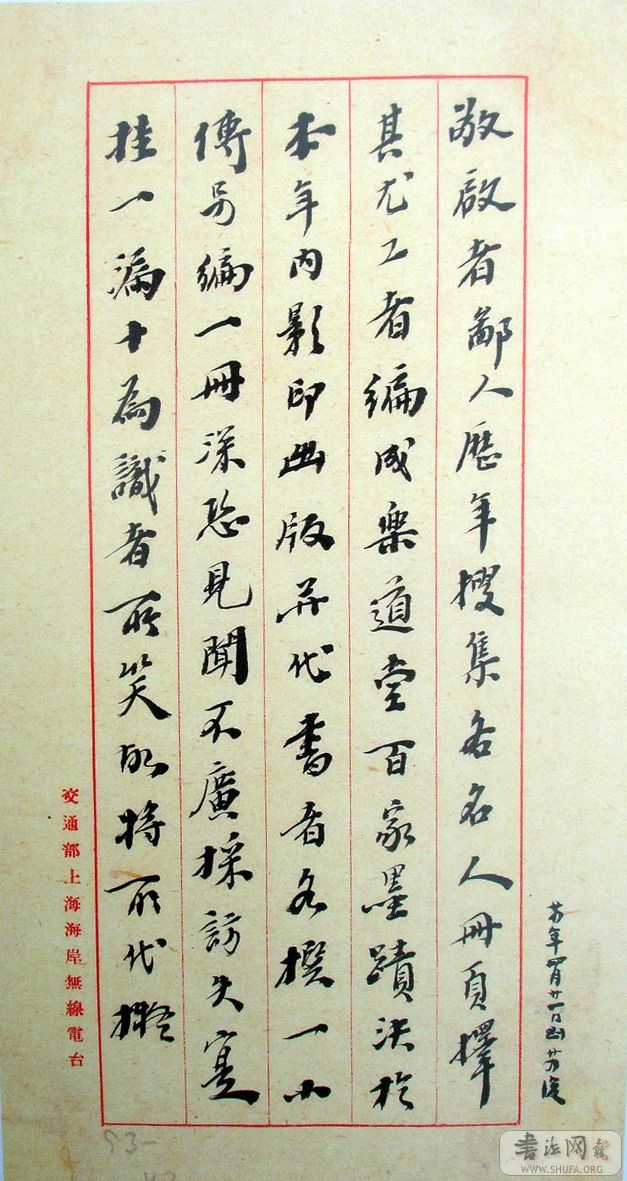 敬啟者鄙人歷年搜集各名人冊頁擇
其尤工者編成樂道堂百家墨蹟決於
本年內影印出版并代書者各撰一小
傳另編一冊深恐見聞不廣採訪失實
挂一漏十為識者所笑的將所代擬
交通部上海海岸無線電台
年 月廿一日
93-
書法网
WWW.SHUFA.ORG